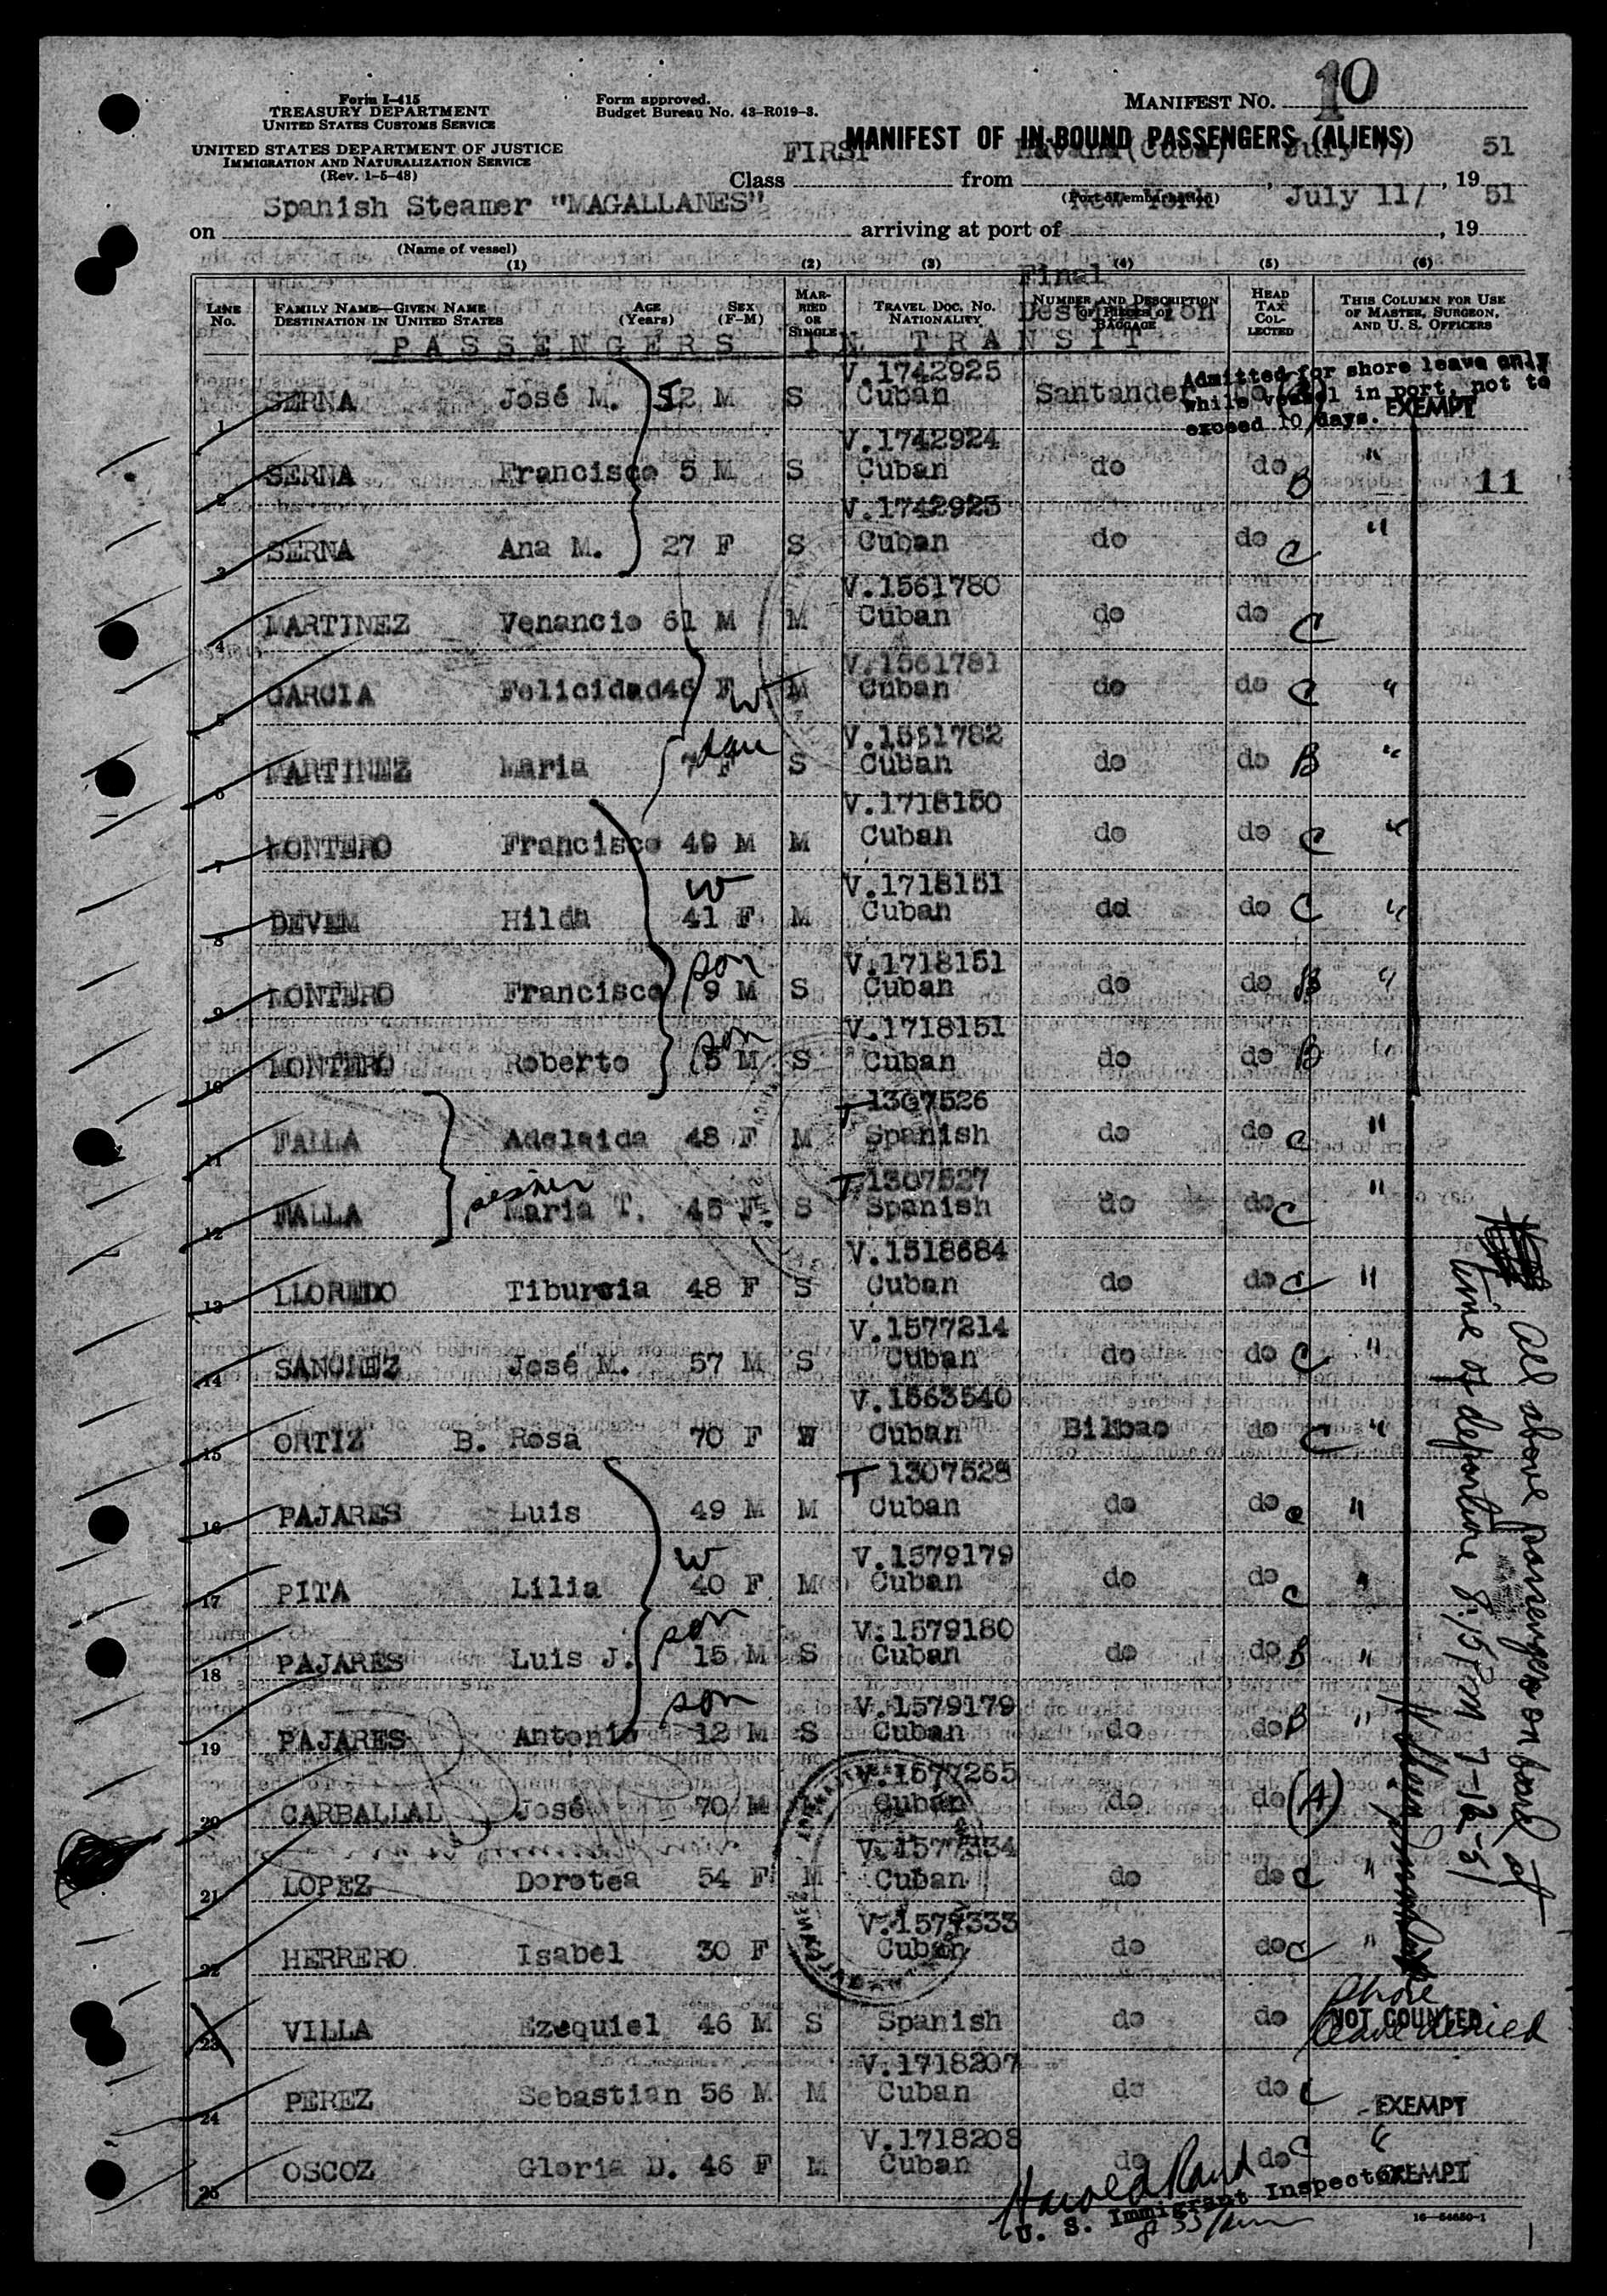 10
Form I-415
TREASURY DEPARTMENT
UNITED STATES CUSTOMS SERVICE
Form approved.
Budget Bureau No. 43-R019-3.
MANIFEST NO.
UNITED STATES DEPARTMENT OF JUSTICE
IMMIGRATION AND NATURALIZATION SERVICE
(Rev. 1-5-48)
MANIFEST OF IN-BOUND PASSENGERS (ALIENS)
FIRST Havana (Cuba) July 51
Class from , 19
(Port of embarkation)
Spanish Steamer "MAGALLANES" New York July 11/ 51
on arriving at port of , 19
(Name of vessel)
(1) (2) (3) (4) (5) (6)
Final Destination
LINE No. FAMILY NAME—GIVEN NAME DESTINATION IN UNITED STATES AGE (Years) SEX (F-M) MARRIED OR SINGLE TRAVEL DOC. NO. NATIONALITY NUMBER AND DESCRIPTION OF PIECES OF BAGGAGE HEAD TAX COLLECTED THIS COLUMN FOR USE OF MASTER, SURGEON, AND U. S. OFFICERS
PASSENGERS IN TRANSIT
Admitted for shore leave only
while vessel in port, not to
exceed 10 days. EXEMPT
1 SERNA José M. 52 M S V.1742925 Cuban Santander
2 SERNA Francisco 5 M S V.1742924 Cuban do do B " 11
3 SERNA Ana M. 27 F S V.1742923 Cuban do do C "
4 MARTINEZ Venancio 61 M M V.1561780 Cuban do do C
5 GARCIA Felicidad 46 F W M V.1561781 Cuban do do C "
6 MARTINEZ Maria 7 F dau S V.1561782 Cuban do do B "
7 MONTERO Francisco 49 M M V.1718150 Cuban do do C "
8 DEVEM Hilda W 41 F M V.1718151 Cuban do do C "
9 MONTERO Francisco son 9 M S V.1718151 Cuban do do B "
10 MONTERO Roberto son 5 M S V.1718151 Cuban do do B "
11 FALLA Adelaida 48 F M T 1307526 Spanish do do C "
12 FALLA sister Maria T. 45 F S T 1307527 Spanish do do C "
13 LLOREDO Tiburcia 48 F S V.1518684 Cuban do do C "
14 SANCHEZ José M. 57 M S V.1577214 Cuban do do C "
15 ORTIZ B. Rosa 70 F W V.1563540 Cuban Bilbao do C "
16 PAJARES Luis 49 M M T 1307528 Cuban do do C "
17 PITA Lilia W 40 F M V.1579179 Cuban do do C "
18 PAJARES Luis J. son 15 M S V.1579180 Cuban do do B "
19 PAJARES Antonio son 12 M S V.1579179 Cuban do do B "
20 CARBALLAL José 70 M V.1577265 Cuban do do (A) "
21 LOPEZ Dorotea 54 F M V.1577334 Cuban do do C "
22 HERRERO Isabel 30 F V.1577333 Cuban do do C "
23 VILLA Ezequiel 46 M S Spanish do do Shore leave denied NOT COUNTED
24 PEREZ Sebastian 56 M M V.1718207 Cuban do do C EXEMPT
25 OSCOZ Gloria D. 46 F M V.1718208 Cuban do do C " EXEMPT
All above passengers on board at
time of departure 8:15 PM 7-12-51
Harold Rand
U. S. Immigrant Inspector
16—54650-1